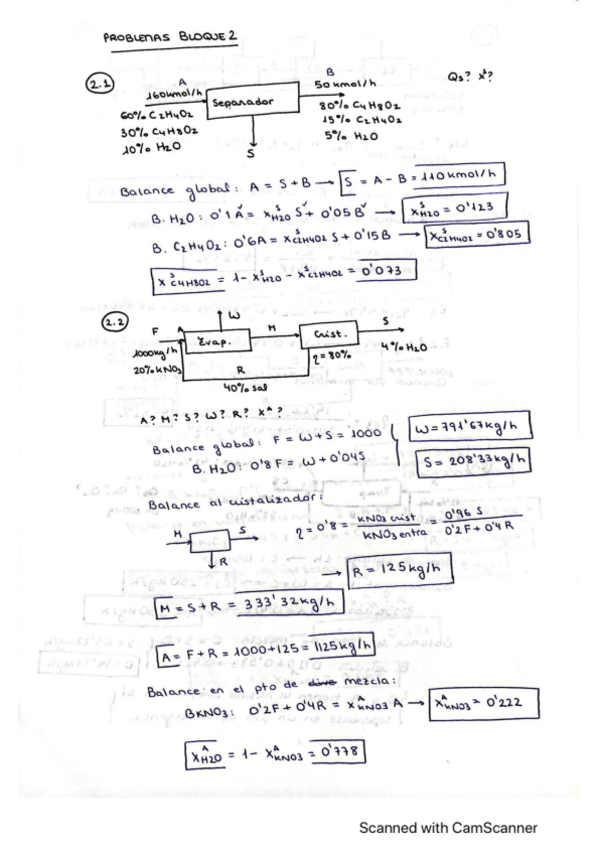 PROBLEMAS BLOQUE 2
2.1
A
160 kmol/h
60% C2H4O2
30% C4H8O2
10% H2O
Separador
S
B
50 kmol/h
80% C4H8O2
15% C2H4O2
5% H2O
Qs? x^s?
Balance global: A = S + B → S = A - B = 110 kmol/h
B. H2O: 0'1A = x^s_H2O S + 0'05B → x^s_H2O = 0'123
B. C2H4O2: 0'6A = x^s_C2H4O2 S + 0'15B → x^s_C2H4O2 = 0'805
x^s_C4H8O2 = 1 - x^s_H2O - x^s_C2H4O2 = 0'073
2.2
F
1000kg/h
20% KNO3
A
W
Evap.
M
Crist.
η = 80%
S
4% H2O
R
40% sal
A? M? S? W? R? x^A?
Balance global: F = W + S = 1000
B. H2O: 0'8F = W + 0'04S
W = 791'67 kg/h
S = 208'33 kg/h
Balance al cristalizador:
M
S
R
η = 0'8 = KNO3 crist / KNO3 entra = 0'96 S / 0'2F + 0'4R
→ R = 125 kg/h
M = S + R = 333'32 kg/h
A = F + R = 1000 + 125 = 1125 kg/h
Balance en el pto de mezcla:
B KNO3: 0'2F + 0'4R = x^A_KNO3 A → x^A_KNO3 = 0'222
x^A_H2O = 1 - x^A_KNO3 = 0'778
Scanned with CamScanner